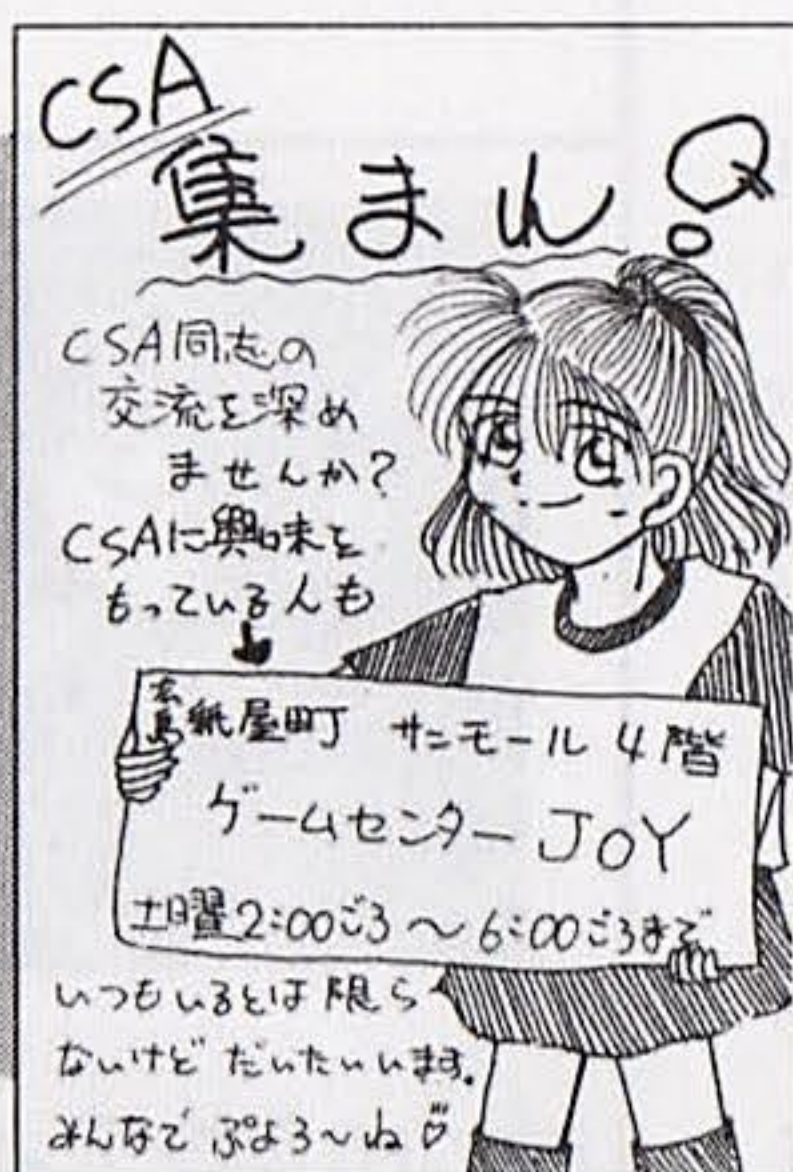 CSA
集まれ!
CSA同志の
交流を深め
ませんか?
CSAに興味を
もっている人も
広島 紙屋町 サンモール 4階
ゲームセンター JOY
土日曜2:00ごろ〜6:00ごろまで
いつもいるとは限ら
ないけど だいたいいます。
みんなで ぷよろ〜ね♡